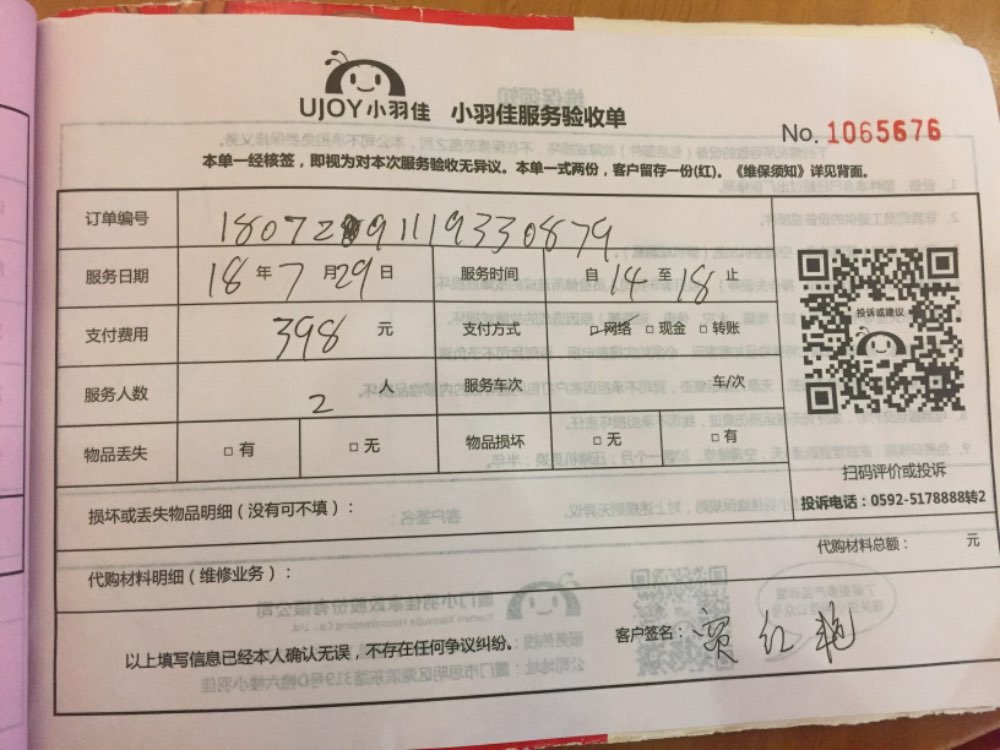 UJOY小羽佳 小羽佳服务验收单
No. 1065676
本单一经核签，即视为对本次服务验收无异议。本单一式两份，客户留存一份(红)。《维保须知》详见背面。
订单编号 1807291119330879
服务日期 18年7月29日 服务时间 自14至18止
支付费用 398元 支付方式 □网络 □现金 □转账
服务人数 2人 服务车次 车/次
物品丢失 □有 □无 物品损坏 □无 □有
投诉或建议
扫码评价或投诉
投诉电话：0592-5178888转2
损坏或丢失物品明细（没有可不填）：
代购材料总额： 元
代购材料明细（维修业务）：
以上填写信息已经本人确认无误，不存在任何争议纠纷。
客户签名：贾红艳